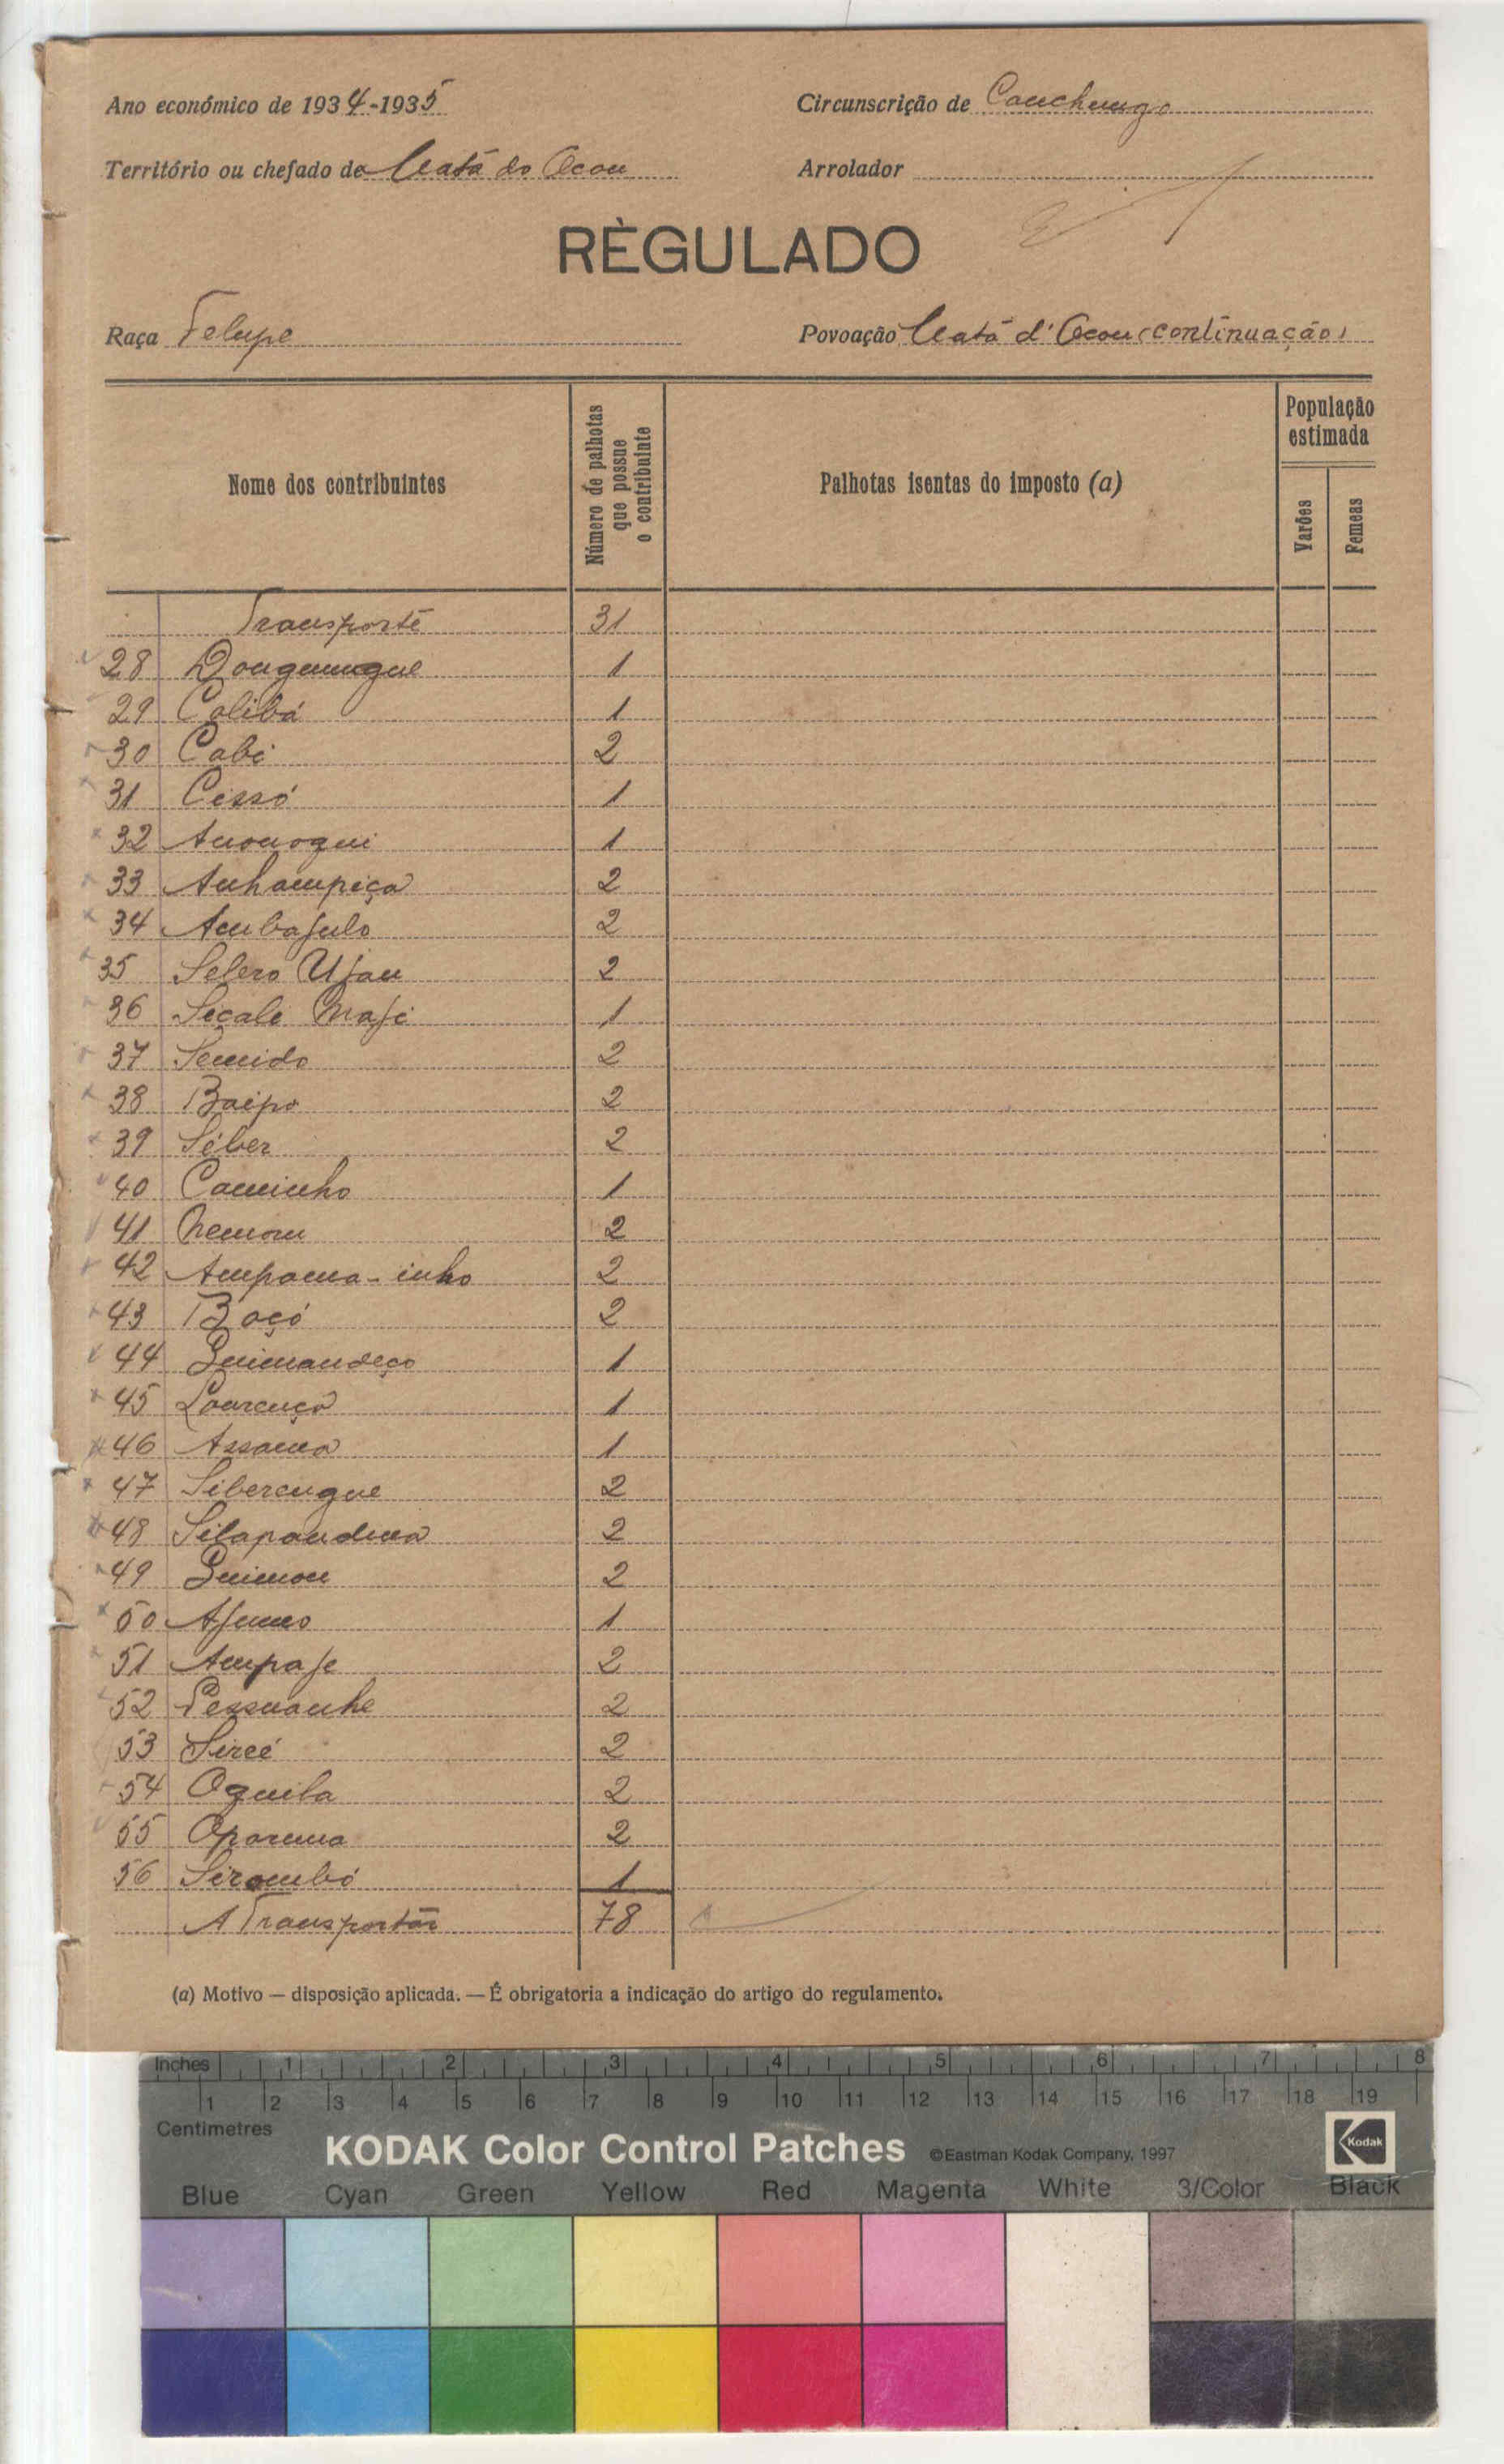 Ano económico de 1934-1935 Circunscrição de Canchungo
Território ou chefado de Catá do Ocou Arrolador
RÈGULADO
Raça Felupe Povoação Catá d'Ocou (continuação)
Nome dos contribuintes
Número de palhotas que possue o contribuinte
Palhotas isentas do imposto (a)
População estimada
Varões
Femeas
Transporte 31
28 1
29 Calibá 1
30 Cabi 2
31 Cissó 1
32 1
33 Anhampiça 2
34 Ambajulo 2
35 Selero Ujau 2
36 Seçali Maji 1
37 Semido 2
38 Baipo 2
39 Séber 2
40 Caminho 1
41 2
42 Ampama-inho 2
43 Baçó 2
44 Guimandeço 1
45 Lourenço 1
46 Assama 1
47 Siberengue 2
48 Silapandina 2
49 Guimou 2
50 1
51 Ampaje 2
52 2
53 Sireé 2
54 Oquila 2
55 2
56 Sirambó 1
A Transportar 78
(a) Motivo — disposição aplicada. — É obrigatoria a indicação do artigo do regulamento.
Inches 1 2 3 4 5 6 7 8
1 2 3 4 5 6 7 8 9 10 11 12 13 14 15 16 17 18 19
Centimetres
KODAK Color Control Patches ©Eastman Kodak Company, 1997 Kodak
Blue Cyan Green Yellow Red Magenta White 3/Color Black